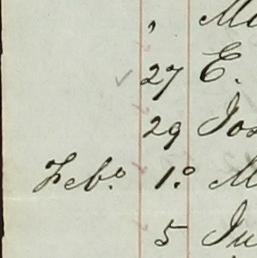 " Mi
27 E.
29 Jos
Febº 1º M
5 Ju